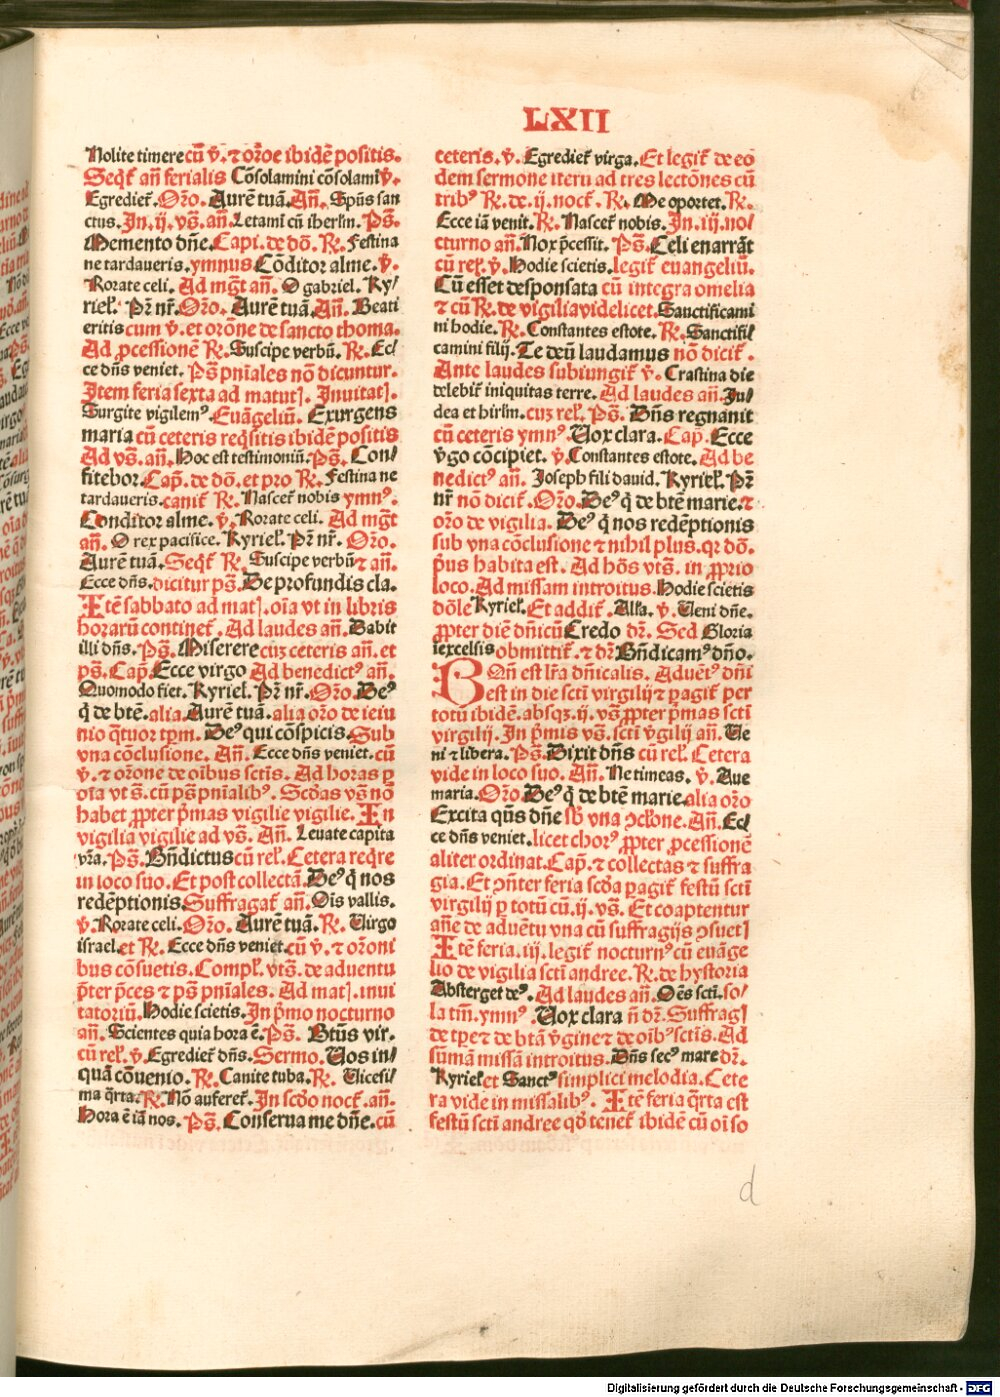 LXII
Nolite timere cū ꝟ. ⁊ or̄oe ibidē positis.
Seqr̄ an̄ ferialis Cōsolamini cōsolami ꝟ.
Egredieꝉ. Or̄o. Aurē tuā. An̄. Sp̄us san
ctus. In .ij. vs̄. an̄. Letami cū iherl̄m. Ps̄.
Memento dn̄e. Capi. de dō. R̷. Festina
ne tardaueris. ymnus Cōditor alme. ꝟ.
Rorate celi. Ad mḡt an̄. O gabriel. Ky/
riel̄. Pr̄ nr̄. Or̄o. Aurē tuā. An̄. Beati
eritis cum ꝟ. et orōne de sancto thoma.
Ad ꝓcessionē R̷. Suscipe verbū. R̷. Ec/
ce dn̄s veniet. Ps̄ pn̄iales nō dicuntur.
Item feria sexta ad matuꝉ. Inuitatꝉ.
Surgite vigilemꝰ. Euāgeliū. Exurgens
maria cū ceteris reqsitis ibidē positis
Ad vs̄. an̄. Hoc est testimoniū. Ps̄. Con/
fitebor. Cap̄. de dō. et pro R̷. Festina ne
tardaueris. canit̄ R̷. Nasceꝉ nobis ymnꝰ.
Conditor alme. ꝟ. Rorate celi. Ad mḡt
an̄. O rex pacifice. Kyriel̄. Pr̄ nr̄. Or̄o.
Aurē tuā. Seqt̄ R̷. Suscipe verbū ⁊ an̄.
Ecce dn̄s. dicitur ps̄. De profundis cla.
Itē sabbato ad matꝉ. oīa vt in libris
horarū continet̄. Ad laudes an̄. Dabit
illi dn̄s. Ps̄. Miserere cuꝫ ceteris an̄. et
ps̄. Cap̄. Ecce virgo Ad benedictꝰ an̄.
Quomodo fiet. Kyriel. Pr̄ nr̄. Or̄o. Deꝰ
q̄ de btē. alia. Aurē tuā. alia or̄o de ieiu
nio q̄tuor tp̄m. Deꝰ qui cōspicis. Sub
vna cōclusione. An̄. Ecce dn̄s veniet. cū
ꝟ. ⁊ or̄one de oībus sctīs. Ad horas ꝑ
oīa vt s̄. cū ps̄ pnīalibꝰ. Scdas vs̄ nō
habet ꝓpter p̄mas vigilie vigilie. In
vigilia vigilie ad vs̄. An̄. Leuate capita
vr̄a. Ps̄. Bn̄dictus cū rel̄. Cetera req̄re
in loco suo. Et post collectā. Deꝰ q̄ nos
redēptionis. Suffragat̄ an̄. Ois vallis.
ꝟ. Rorate celi. Or̄o. Aurē tuā. R̷. Virgo
israel. et R̷. Ecce dn̄s veniet. cū ꝟ. ⁊ oroni
bus cōsuetis. Compl̄. vts̄. de aduentu
p̄ter p̄ces ⁊ ps̄ pn̄iales. Ad matꝉ. inui
tatoriū. Hodie scietis. In p̄mo nocturno
an̄. Scientes quia hora ē. Ps̄. Btūs vir.
cū rel̄. ꝟ. Egredieꝉ dn̄s. Sermo. Vos in/
quā cōuenio. R̷. Canite tuba. R̷. Vicesi/
ma q̄rta. R̷. Nō auferet̄. In scdo noct̄. an̄.
Hora ē iā nos. Ps̄. Conserua me dn̄e. cū
ceteris. ꝟ. Egrediet̄ virga. Et legit̄ de eo
dem sermone iteru ad tres lectōnes cū
tribꝰ R̷. de .ii. noct̄. R̷. Me oportet. R̷.
Ecce iā venit. R̷. Nascet̄ nobis. In .iij. no/
cturno an̄. Nox p̄cessit. Ps̄. Celi enarrāt
cū rel̄. ꝟ. Hodie scietis. legit̄ euangeliū.
Cū esset desponsata cū integra omelia
⁊ cū R̷. de vigilia videlicet. Sanctificami
ni hodie. R̷. Constantes estote. R̷. Sanctifi/
camini filij. Te deū laudamus nō dicit̄.
Ante laudes subiungit̄ ꝟ. Crastina die
delebit̄ iniquitas terre. Ad laudes an̄. Ju/
dea et hirlm̄. cuꝫ rel̄. Ps̄. Dn̄s regnauit
cū ceteris ymnꝰ. Vox clara. Cap̄. Ecce
v̄go cōcipiet. ꝟ. Constantes estote. Ad be
nedictꝰ an̄. Joseph fili dauid. Kyriel̄. Pr̄
nr̄ nō dicit̄. Or̄o. Deꝰ q̄ de btē marie. ⁊
or̄o de vigilia. Deꝰ q̄ nos redēptionis
sub vna cōclusione ⁊ nihil plus. qꝛ dō.
p̄us habita est. Ad hōs vts̄. in ꝓprio
loco. Ad missam introitus. Hodie scietis
dōle Kyriel̄. Et addit̄. Alla. ꝟ. Veni dn̄e.
ꝓpter diē dn̄icū Credo dr̄. Sed Gloria
iexcelsis obmittit̄. ⁊ dr̄ Bn̄dicamꝰ dn̄o.
Qn̄ est lr̄a dn̄icalis. Aduētꝰ dn̄i
est in die sctī virgilij ⁊ ꝑagit̄ per
totū ibidē. absqꝫ .ii. vs̄ ꝓpter p̄mas sctī
virgilij. In p̄mis vs̄. sctī v̄gilij an̄. Ve
ni ⁊ libera. Ps̄. Dixit dn̄s cū rel̄. Cetera
vide in loco suo. An̄. Ne timeas. ꝟ. Aue
maria. Or̄o. Deꝰ q̄ de btē marie. alia or̄o
Excita qūs dn̄e sb̄ vna ↄcl̄one. An̄. Ec/
ce dn̄s veniet. licet chorꝰ ꝓpter ꝓcessionē
aliter ordinat. Cap̄. ⁊ collectas ⁊ suffra
gia. Et ↄn̄ter feria scda ꝑagit̄ festū sctī
virgilij ꝑ totū cū .ii. vs̄. Et coaptentur
an̄e de aduētu vna cū suffragijs ↄsuetꝉ
Itē feria .iij. legit̄ nocturnꝰ cū euāge
lio de vigilia sctī andree. R̷. de hystoria
Absterget deꝰ. Ad laudes an̄. Oēs sctī. so/
la tm̄. ymnꝰ Vox clara n̄ dr̄. Suffragꝉ
de tp̄e ⁊ de btā v̄gine ⁊ de oībꝰ sctīs. Ad
sūmā missā introitus. Dn̄s secꝰ mare dr̄.
Kyriel̄ et Sanctꝰ simplici melodia. Cete
ra vide in missalibꝰ. Itē feria q̄rta est
festū sctī andree qd̄ tenet̄ ibidē cū oī so
d
Digitalisierung gefördert durch die Deutsche Forschungsgemeinschaft - DFG